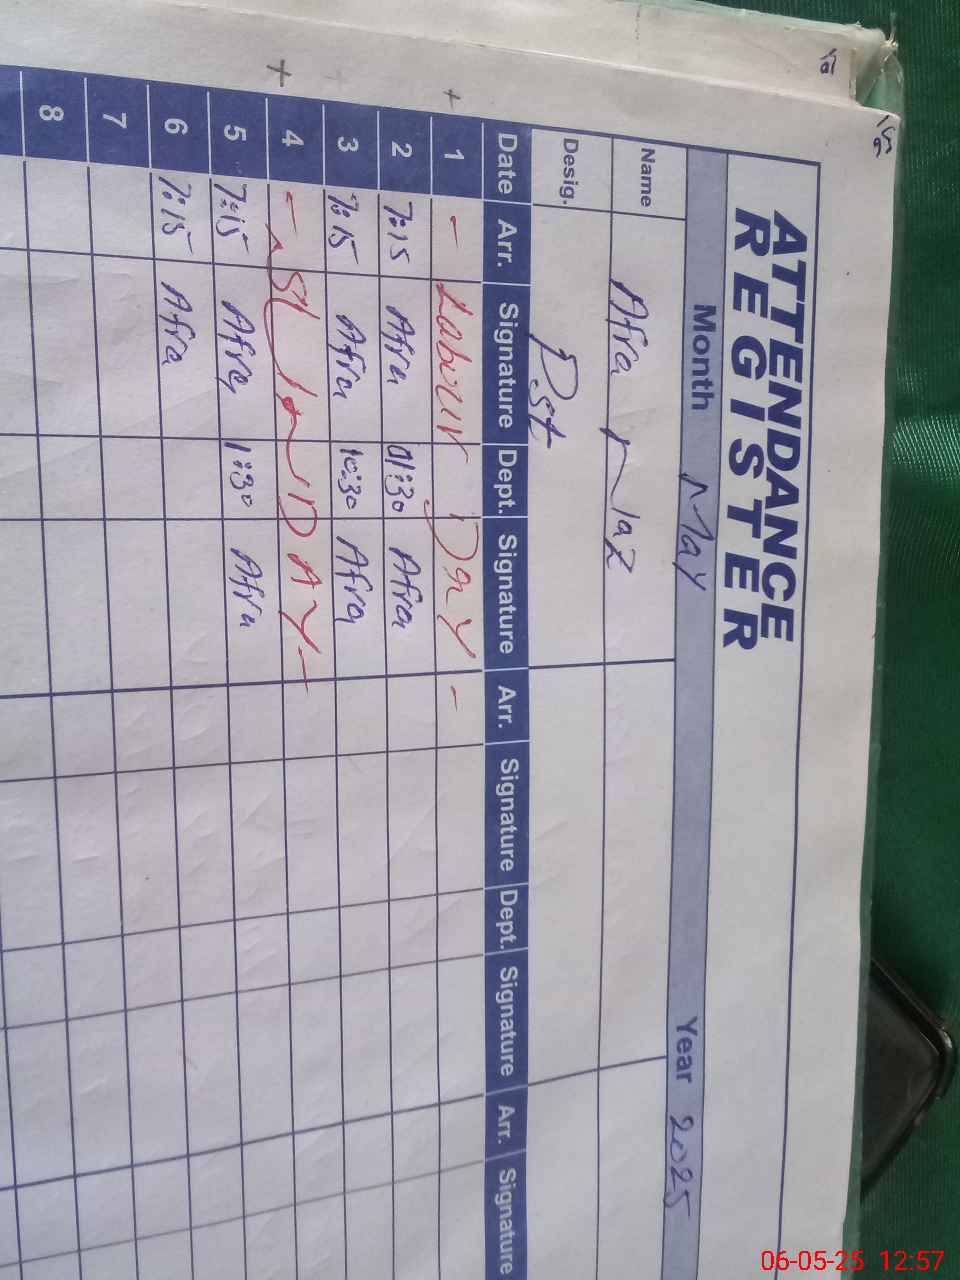 ATTENDANCE
REGISTER
Month May Year 2025
Name Afra Naz
Desig. Pst
Date Arr. Signature Dept. Signature Arr. Signature Dept. Signature Arr. Signature
1 - Labour Day -
2 7:15 Afra 01:30 Afra
3 7:15 Afra 10:30 Afra
4 - SUNDAY -
5 7:15 Afra 1:30 Afra
6 7:15 Afra
7
8
06-05-25 12:57